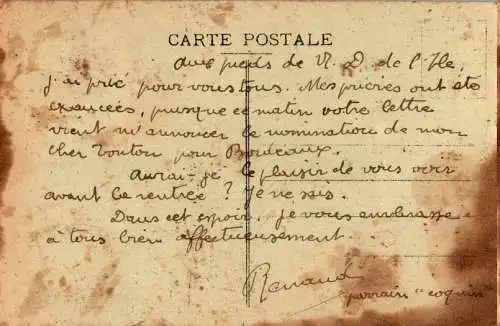 CARTE POSTALE
aux pieds de N. D. de l'Ile,
j'ai prié pour vous tous. Mes prières ont été
exaucées, puisque ce matin votre lettre
vient m'annoncer la nomination de mon
cher Tonton pour Bordeaux.
Aurai-je le plaisir de vous voir
avant la rentrée ? Je ne sais.
Dans cet espoir, je vous embrasse
à tous bien affectueusement.
Renaud
parrain "coquin"